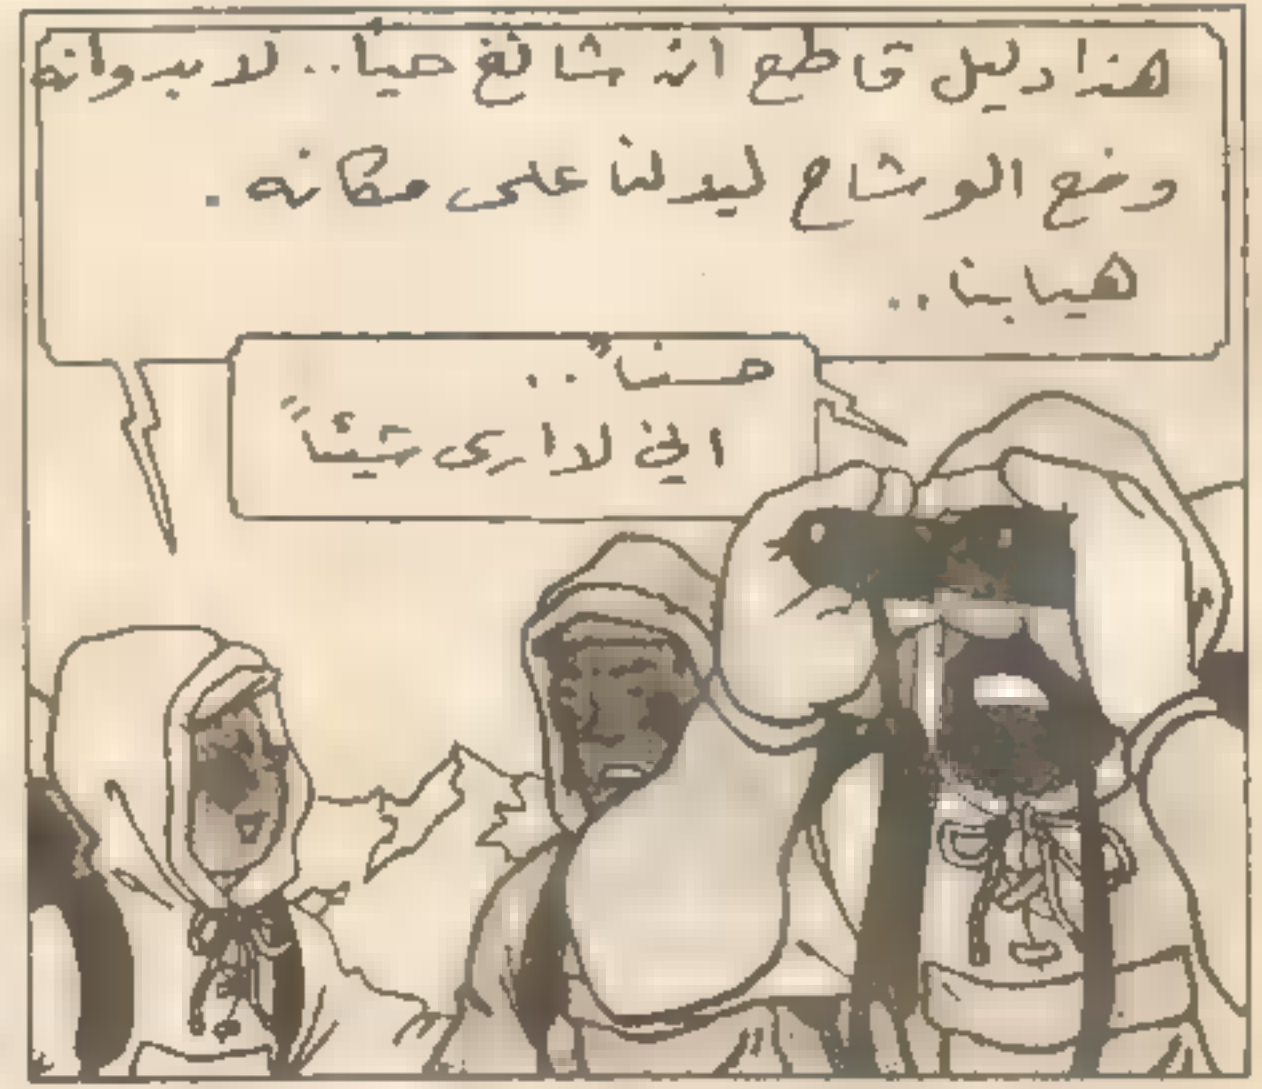 هذا دليل قاطع انه شانغ حياً.. لا بد وانه
وضع الوشاح ليدلنا على مكانه .
هيا بنا ..
حسناً ..
اني لا ارى شيئاً